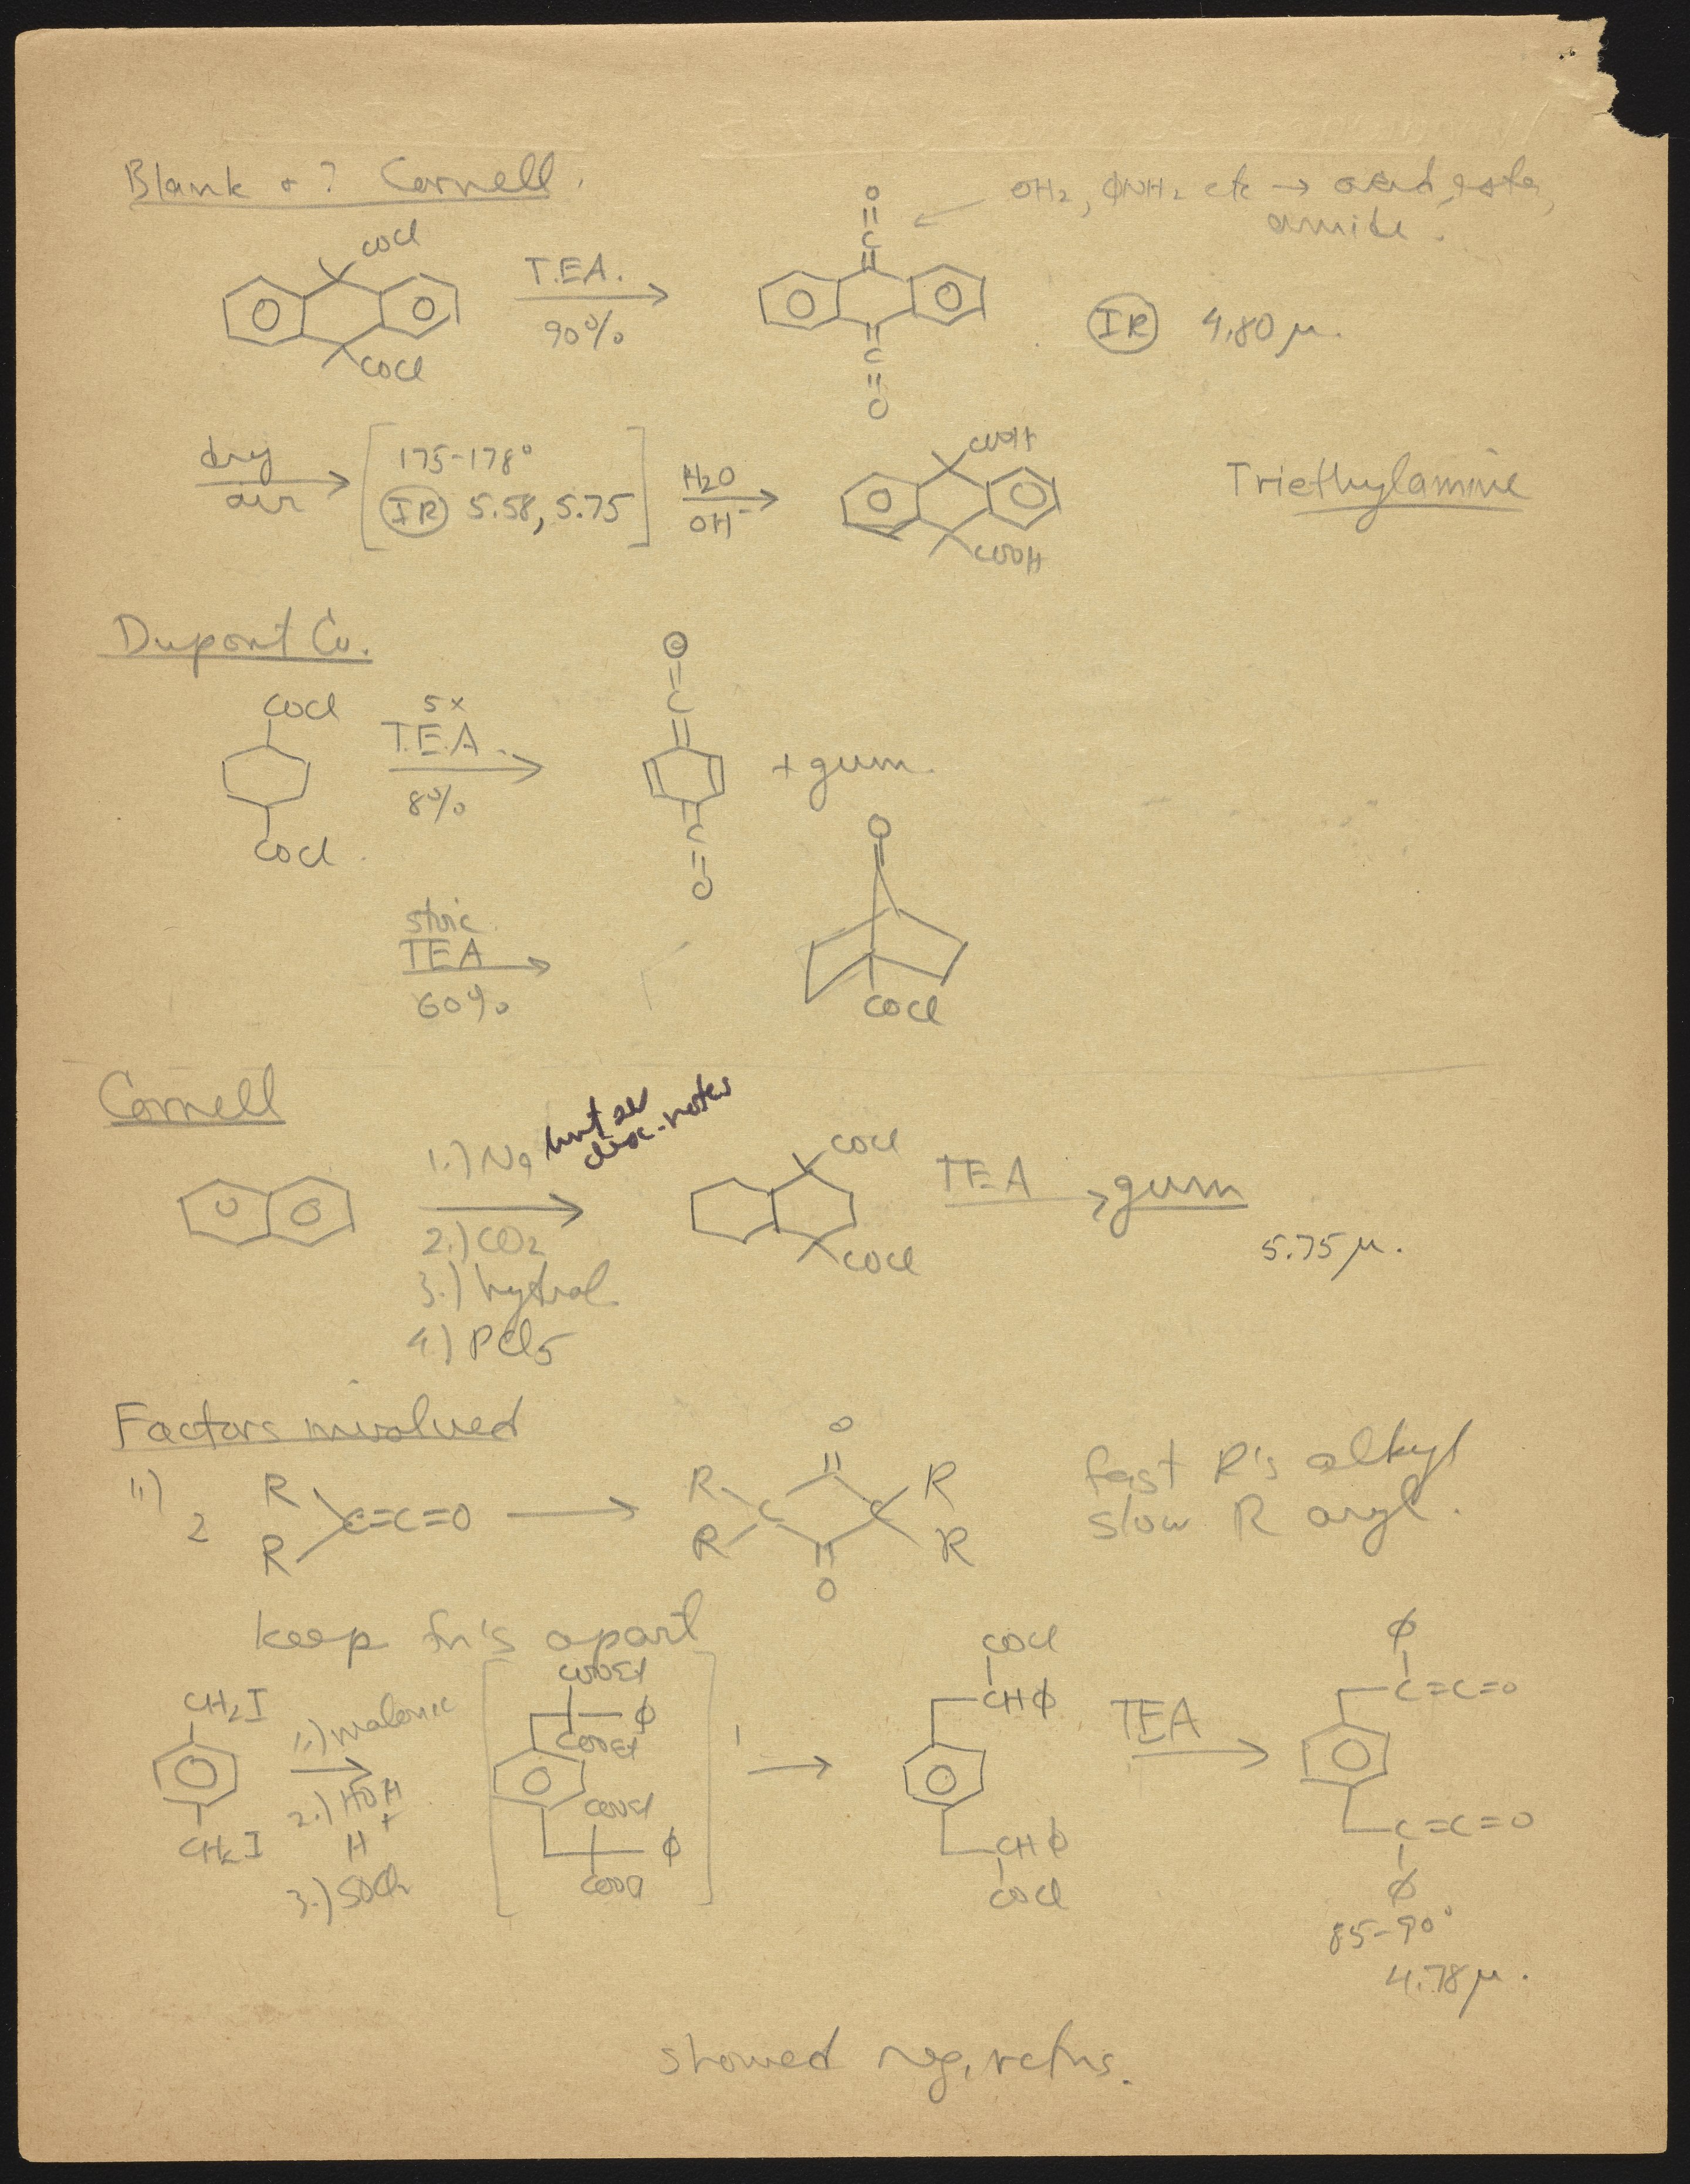 Blank + ? Cornell.
OH2, ΦNH2 etc → acid, ester,
amide.
COCl
COCl
T.E.A.
90%
O
C
C
O
IR 4.80 μ.
dry
air
175-178°
IR 5.58, 5.75
H2O
OH-
COOH
COOH
Triethylamine
Dupont Co.
COCl
COCl
5x
T.E.A.
8%
O
C
C
O
+ gum.
stoic.
TEA
60%
O
COCl
Cornell
1.) Na
2.) CO2
3.) hydrol
4.) PCl5
COCl
COCl
TEA
gum
5.75 μ.
Factors involved
1.)
2 R R C=C=O →
R R C C R R
O
O
fast R's alkyl
slow R aryl.
keep fn's apart
CH2I
CH2I
1.) malonic
2.) HOH
H+
3.) SOCl2
COOEt
Φ
COOEt
COOEt
Φ
COCl
CHΦ
CHΦ
COCl
TEA
Φ
C=C=O
C=C=O
Φ
85-90°
4.78 μ.
showed neg. rctns.